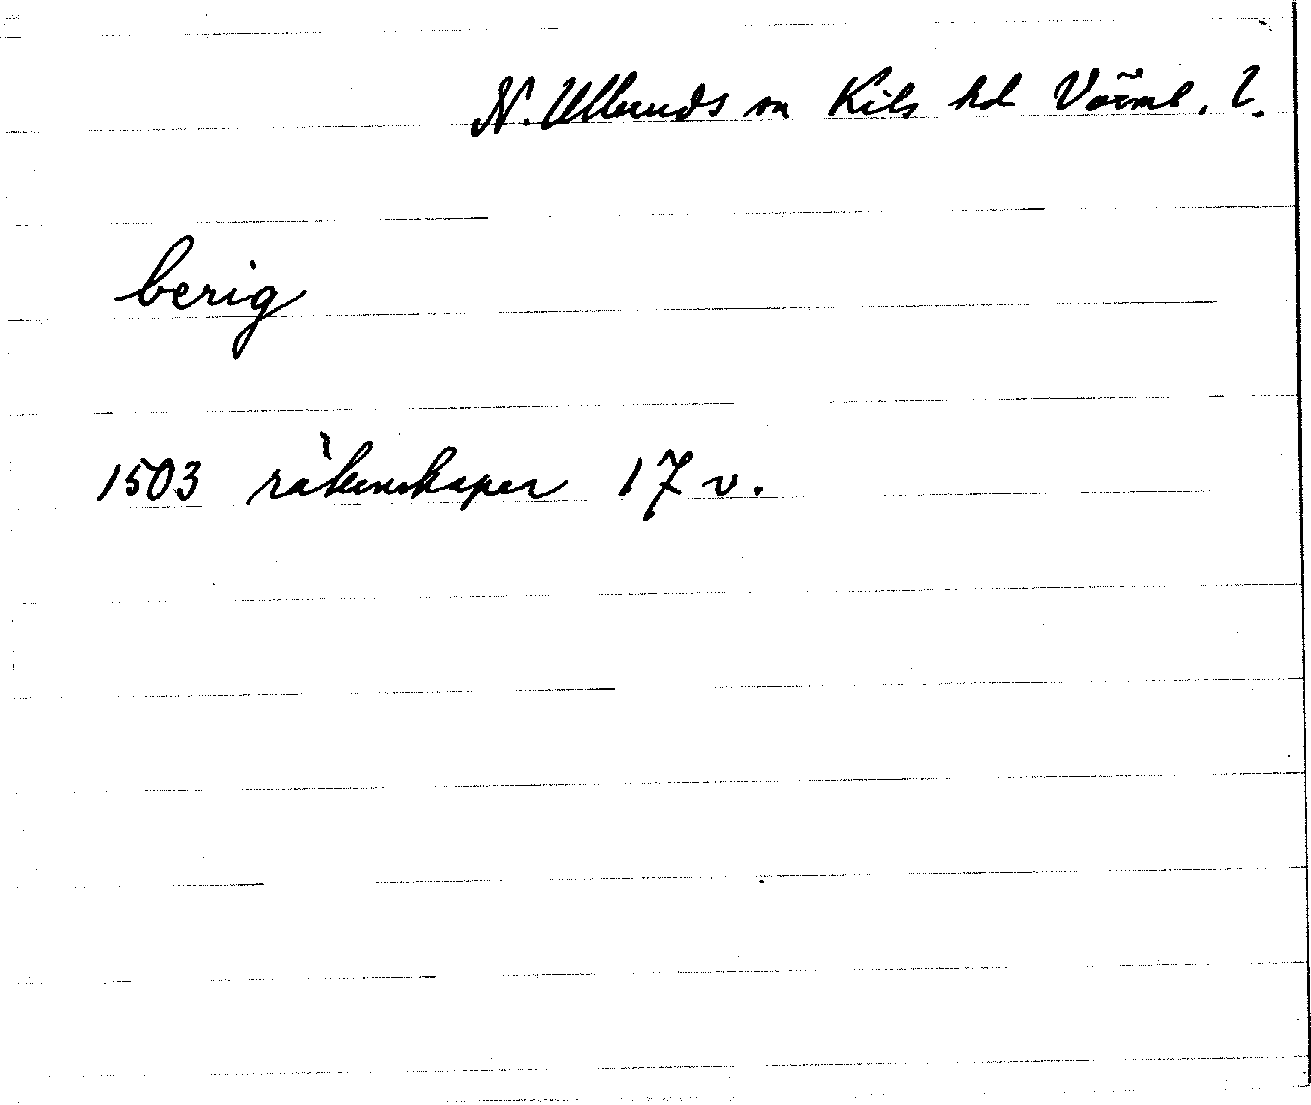 N. Ullerud sn Kils hd Värml. l.
berig
1503 räkenskaper 17 v.